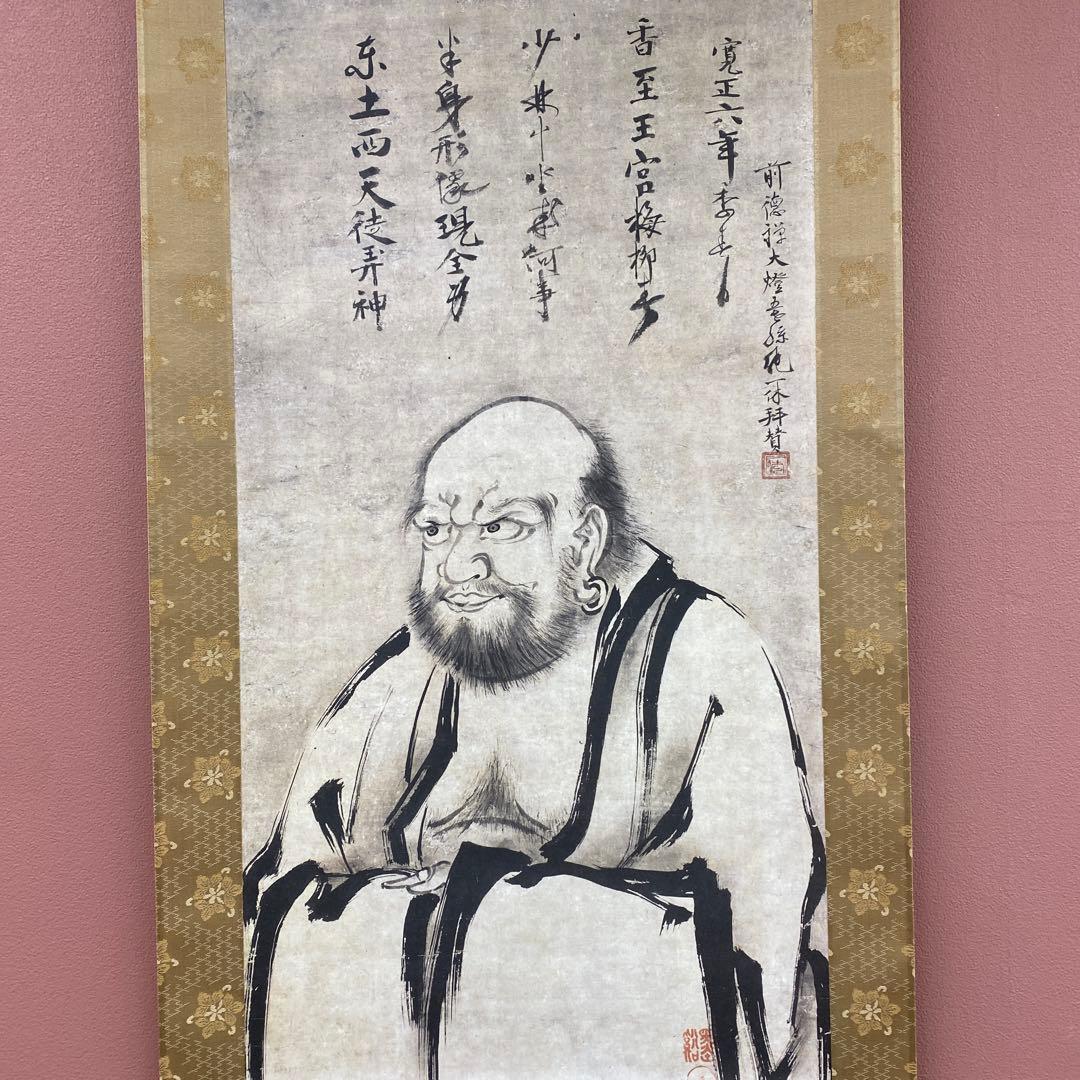 东土西天徒弄神
半身形像現全身
少林冷坐成何事
香至王宮梅柳春
寛正六年季春日
前徳禅大燈五世孫純一休拝賛
墨谿